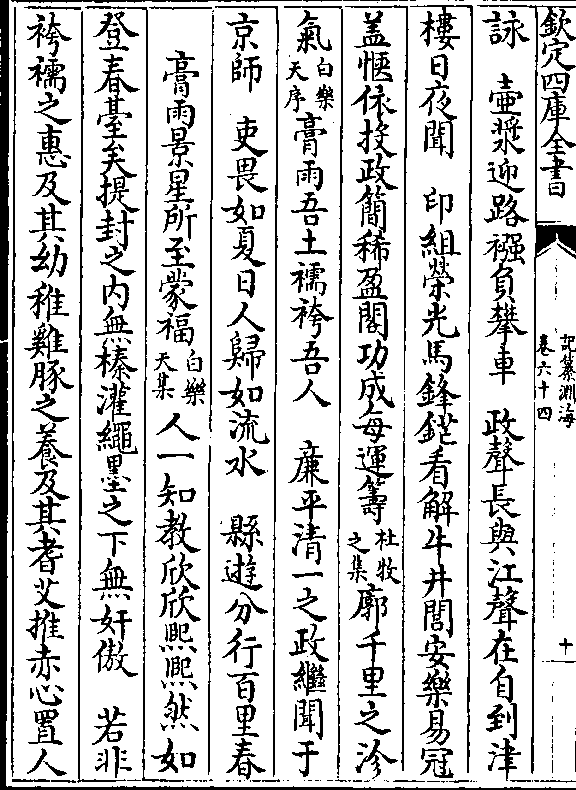 欽定四庫全書
記纂淵海
卷六十四
十
詠　壺漿迎路襁負攀車　政聲長與江聲在自到津
樓日夜聞　印組榮光馬鋒鋩看解牛井閭安樂易冠
盖愜依投政簡稀盈閣功成每運籌杜牧之集廓千里之沴
氣白樂天序膏雨吾土襦袴吾人　廉平清一之政繼聞于
京師　吏畏如夏日人歸如流水　縣遊分行百里春
膏雨景星所至蒙福白樂天集人一知教欣欣熙熙然如
登春臺矣提封之内無榛灌繩墨之下無奸傲　若非
袴襦之惠及其幼稚雞豚之養及其耆艾推赤心置人